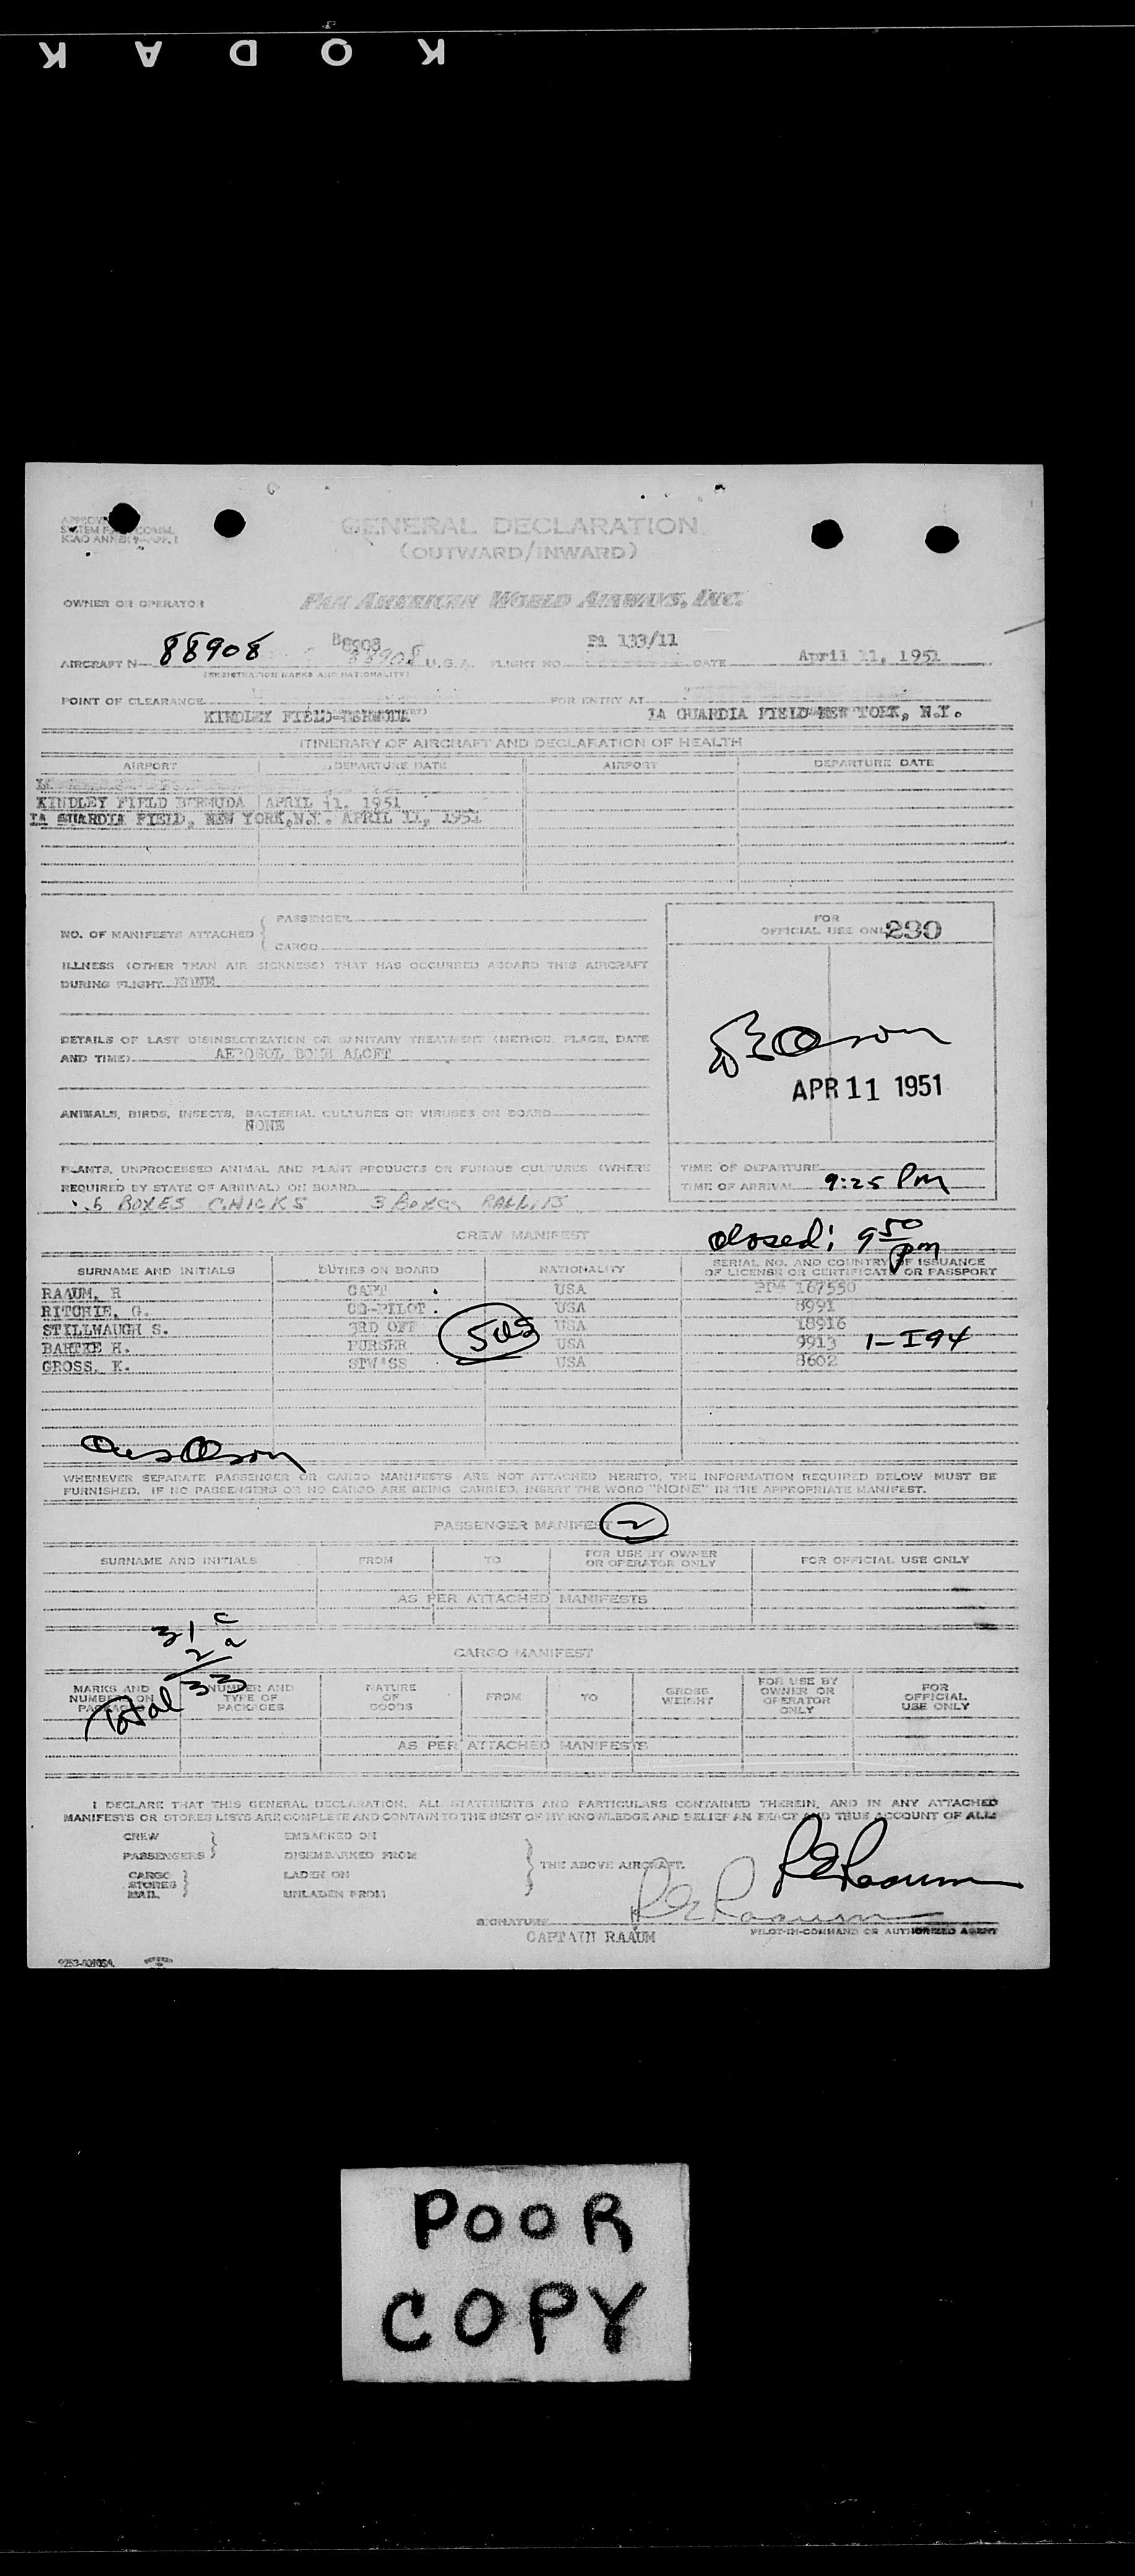 KODAK
APPROV
SYTEM COMM.
ICAO ANNEX 9-APP. 1
GENERAL DECLARATION
(OUTWARD/INWARD)
OWNER OR OPERATOR PAN AMERICAN WORLD AIRWAYS, INC.
AIRCRAFT N- 88908 88908 U.S.A. FLIGHT NO. 133/11 DATE April 11, 1951
(REGISTRATION MARKS AND NATIONALITY)
POINT OF CLEARANCE KINDLEY FIELD-BERMUDA FOR ENTRY AT LA GUARDIA FIELD-NEW YORK, N.Y.
ITINERARY OF AIRCRAFT AND DECLARATION OF HEALTH
AIRPORT DEPARTURE DATE AIRPORT DEPARTURE DATE
KINDLEY FIELD BERMUDA APRIL 11. 1951
LA GUARDIA FIELD, NEW YORK,N.Y. APRIL 11, 1951
NO. OF MANIFESTS ATTACHED PASSENGER
CARGO
FOR
OFFICIAL USE ONLY 290
ILLNESS (OTHER THAN AIR SICKNESS) THAT HAS OCCURRED ABOARD THIS AIRCRAFT
DURING FLIGHT NONE
DETAILS OF LAST DISINSECTIZATION OR SANITARY TREATMENT (METHOD, PLACE, DATE
AND TIME) AEROSOL BOMB ALOFT
APR 11 1951
ANIMALS, BIRDS, INSECTS, BACTERIAL CULTURES OR VIRUSES ON BOARD
NONE
PLANTS, UNPROCESSED ANIMAL AND PLANT PRODUCTS OR FUNGUS CULTURES (WHERE
REQUIRED BY STATE OF ARRIVAL) ON BOARD
6 BOXES CHICKS 3 Boxes
TIME OF DEPARTURE
TIME OF ARRIVAL 9:25 Pm
closed: 9 50 pm
CREW MANIFEST
SURNAME AND INITIALS DUTIES ON BOARD NATIONALITY SERIAL NO. AND COUNTRY OF ISSUANCE
OF LICENSE OR CERTIFICATE OR PASSPORT
RAAUM, R CAPT USA 167550
RITCHIE, G. CO-PILOT USA 8991
STILLWAUGH S. 3RD OFF USA 18916
BARTKE H. PURSER USA 9913 1-I94
GROSS, K. STW'SS USA 8602
WHENEVER SEPARATE PASSENGER OR CARGO MANIFESTS ARE NOT ATTACHED HERETO, THE INFORMATION REQUIRED BELOW MUST BE
FURNISHED. IF NO PASSENGERS OR NO CARGO ARE BEING CARRIED, INSERT THE WORD "NONE" IN THE APPROPRIATE MANIFEST.
PASSENGER MANIFEST 2
SURNAME AND INITIALS FROM TO FOR USE BY OWNER
OR OPERATOR ONLY FOR OFFICIAL USE ONLY
AS PER ATTACHED MANIFESTS
31 c
2 a
Total 33
CARGO MANIFEST
MARKS AND
NUMBERS ON
PACKAGES NUMBER AND
TYPE OF
PACKAGES NATURE
OF
GOODS FROM TO GROSS
WEIGHT FOR USE BY
OWNER OR
OPERATOR
ONLY FOR
OFFICIAL
USE ONLY
AS PER ATTACHED MANIFESTS
I DECLARE THAT THIS GENERAL DECLARATION, ALL STATEMENTS AND PARTICULARS CONTAINED THEREIN, AND IN ANY ATTACHED
MANIFESTS OR STORES LISTS ARE COMPLETE AND CONTAIN TO THE BEST OF MY KNOWLEDGE AND BELIEF AN EXACT AND TRUE ACCOUNT OF ALL:
CREW EMBARKED ON
PASSENGERS DISEMBARKED FROM
CARGO LADEN ON
STORES
MAIL UNLADEN FROM
THE ABOVE AIRCRAFT.
R E Raaum
R E Raaum
SIGNATURE
CAPTAIN RAAUM PILOT-IN-COMMAND OR AUTHORIZED AGENT
POOR
COPY